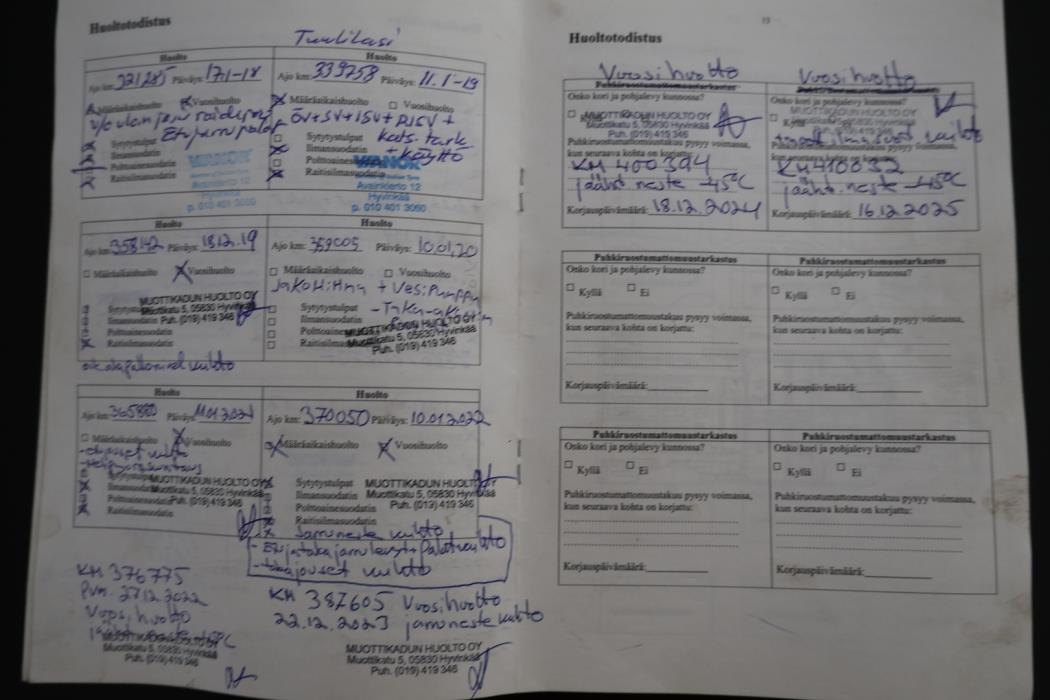 Huoltotodistus
Tuulilasi
Huolto
Ajo km: 321285 Päiväys: 17.1-18
Määräaikaishuolto Vuosihuolto
Sytytystulpat
Ilmansuodatin
Polttoainesuodatin
Raitisilmasuodatin
VIANOR
Avainkierto 12
Hyvinkää
p. 010 401 3060
Huolto
Ajo km: 339758 Päiväys: 11.1-19
Määräaikaishuolto Vuosihuolto
ÖV+SV+ISV+RISV+
Sytytystulpat kats. tark
Ilmansuodatin + käyttö
Polttoainesuodatin
Raitisilmasuodatin
VIANOR
Avainkierto 12
Hyvinkää
p. 010 401 3060
Huolto
Ajo km: 358142 Päiväys: 18.12.19
Määräaikaishuolto Vuosihuolto
Sytytystulpat
Ilmansuodatin
Polttoainesuodatin
Raitisilmasuodatin
MUOTTIKADUN HUOLTO OY
Muottikatu 5, 05830 Hyvinkää
Puh. (019) 419 346
vaihto
Huolto
Ajo km: 359005 Päiväys: 10.01.20
Määräaikaishuolto Vuosihuolto
Jakohihna + Vesipumppu
Sytytystulpat
Ilmansuodatin
Polttoainesuodatin
Raitisilmasuodatin
MUOTTIKADUN HUOLTO OY
Muottikatu 5, 05830 Hyvinkää
Puh. (019) 419 346
Huolto
Ajo km: 365880 Päiväys: 11.01.2021
Määräaikaishuolto Vuosihuolto
Sytytystulpat
Ilmansuodatin
Polttoainesuodatin
Raitisilmasuodatin
MUOTTIKADUN HUOLTO OY
Muottikatu 5, 05830 Hyvinkää
Puh. (019) 419 346
Huolto
Ajo km: 370050 Päiväys: 10.01.2022
Määräaikaishuolto Vuosihuolto
Sytytystulpat
Ilmansuodatin
Polttoainesuodatin
Raitisilmasuodatin
MUOTTIKADUN HUOLTO OY
Muottikatu 5, 05830 Hyvinkää
Puh. (019) 419 346
Jarruneste vaihto
- Etu ja taka jarrulevyt + palat vaihto
- takajouset vaihto
KM 376775
Pvm. 27.12.2022
Vuosihuolto
MUOTTIKADUN HUOLTO OY
Muottikatu 5, 05830 Hyvinkää
Puh. (019) 419 346
KM 387605 Vuosihuolto
22.12.2023 jarruneste vaihto
MUOTTIKADUN HUOLTO OY
Muottikatu 5, 05830 Hyvinkää
Puh. (019) 419 346
Huoltotodistus
Vuosihuolto
Puhkiruostumattomuustarkastus
Onko kori ja pohjalevy kunnossa?
Kyllä
MUOTTIKADUN HUOLTO OY
Muottikatu 5, 05830 Hyvinkää
Puh. (019) 419 346
Puhkiruostumattomuustakuu pysyy voimassa,
kun seuraava kohta on korjattu:
KM 400394
jäähd. neste -45°C
Korjauspäivämäärä: 18.12.2024
Vuosihuolto
Puhkiruostumattomuustarkastus
Onko kori ja pohjalevy kunnossa?
Kyllä
MUOTTIKADUN HUOLTO OY
Muottikatu 5, 05830 Hyvinkää
Puh. (019) 419 346
Puhkiruostumattomuustakuu pysyy voimassa,
kun seuraava kohta on korjattu:
KM 410032
jäähd. neste -45°C
Korjauspäivämäärä: 16.12.2025
Puhkiruostumattomuustarkastus
Onko kori ja pohjalevy kunnossa?
Kyllä Ei
Puhkiruostumattomuustakuu pysyy voimassa,
kun seuraava kohta on korjattu:
Korjauspäivämäärä:
Puhkiruostumattomuustarkastus
Onko kori ja pohjalevy kunnossa?
Kyllä Ei
Puhkiruostumattomuustakuu pysyy voimassa,
kun seuraava kohta on korjattu:
Korjauspäivämäärä:
Puhkiruostumattomuustarkastus
Onko kori ja pohjalevy kunnossa?
Kyllä Ei
Puhkiruostumattomuustakuu pysyy voimassa,
kun seuraava kohta on korjattu:
Korjauspäivämäärä:
Puhkiruostumattomuustarkastus
Onko kori ja pohjalevy kunnossa?
Kyllä Ei
Puhkiruostumattomuustakuu pysyy voimassa,
kun seuraava kohta on korjattu:
Korjauspäivämäärä: